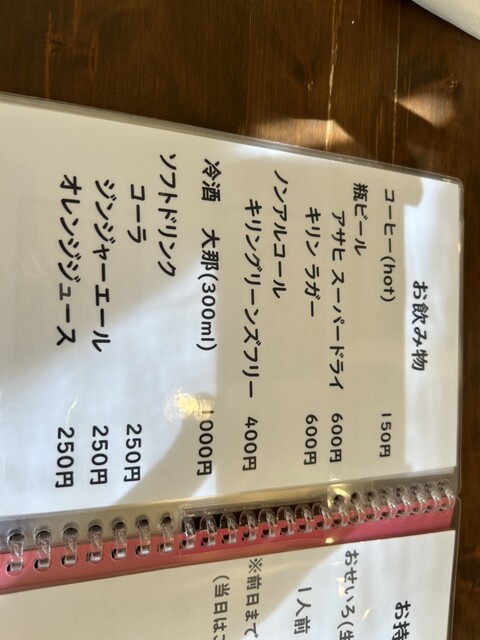 お飲み物
コーヒー(hot) 150円
瓶ビール
アサヒ スーパードライ 600円
キリン ラガー 600円
ノンアルコール
キリングリーンズフリー 400円
冷酒 大那(300ml) 1000円
ソフトドリンク
コーラ 250円
ジンジャーエール 250円
オレンジジュース 250円
お持
おせいろ(生
1人前
※前日まで
(当日は